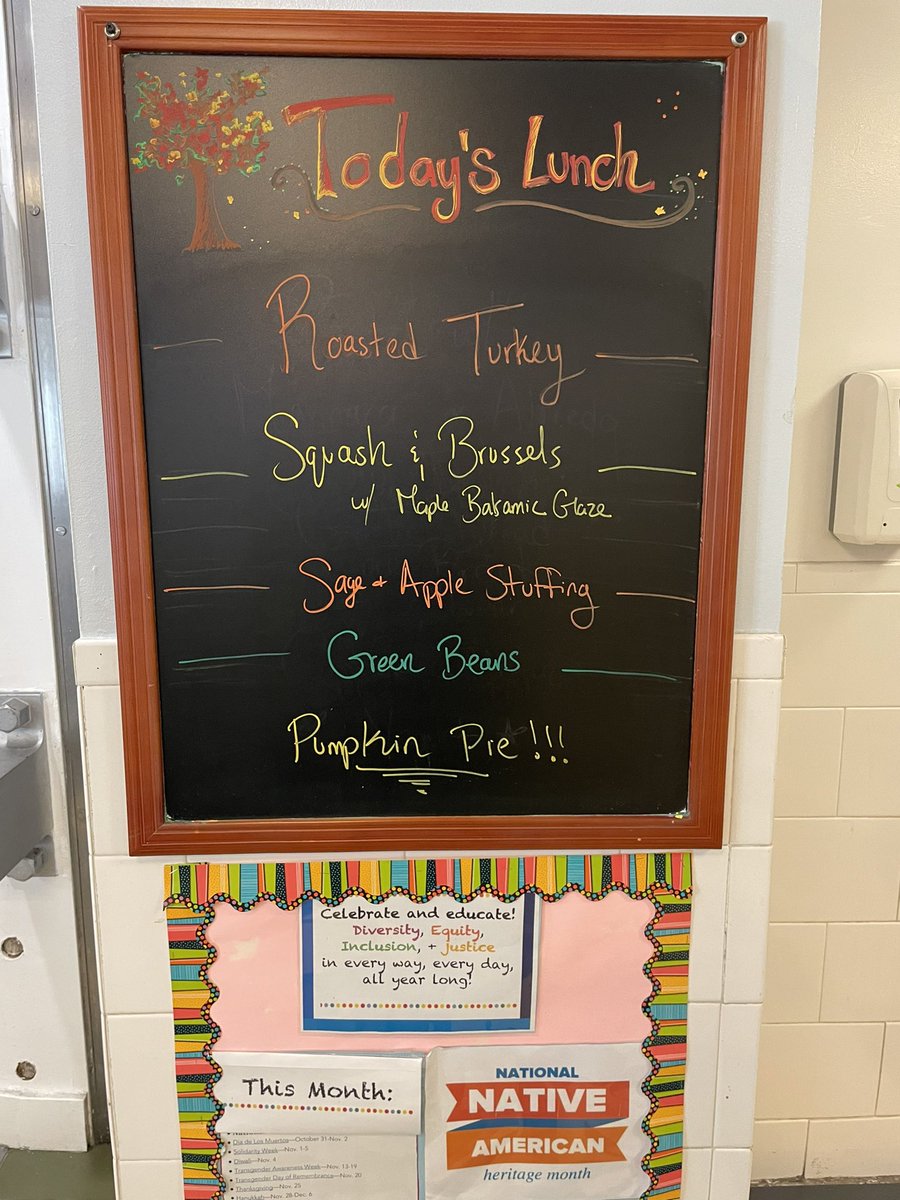 Today's Lunch
Roasted Turkey
Squash & Brussels
w/ Maple Balsamic Glaze
Sage + Apple Stuffing
Green Beans
Pumpkin Pie!!!
Celebrate and educate!
Diversity, Equity,
Inclusion, + justice
in every way, every day,
all year long!
This Month:
Dia de Los Muertos—October 31-Nov. 2
Solidarity Week—Nov. 1-5
Diwali—Nov. 4
Transgender Awareness Week—Nov. 13-19
Transgender Day of Remembrance—Nov. 20
Thanksgiving—Nov. 25
Hanukkah—Nov. 28-Dec. 6
NATIONAL
NATIVE
AMERICAN
heritage month